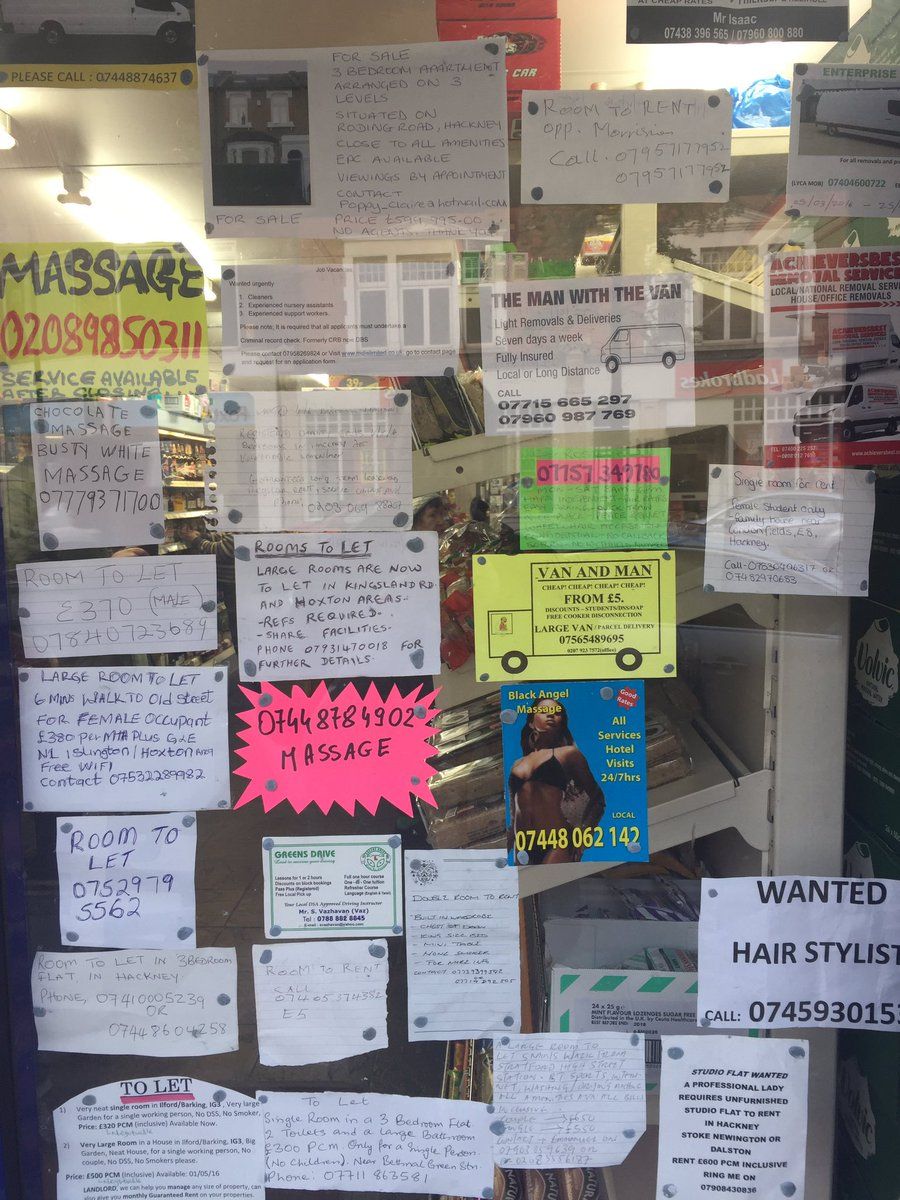 PLEASE CALL : 07448874637
FOR SALE
3 BEDROOM APARTMENT
ARRANGED ON 3
LEVELS
SITUATED ON
RODING ROAD, HACKNEY
CLOSE TO ALL AMENITIES
EPC AVAILABLE
VIEWINGS BY APPOINTMENT
CONTACT
Poppy_Claire@hotmail.com
FOR SALE PRICE £599,995.00
NO AGENTS. THANK YOU
CAR
AT CHEAP RATES
Mr Isaac
07438 396 565 / 07960 800 880
ROOM TO RENT
opp. Morrisions
Call. 07957177952
07957177952
ENTERPRISE
For all removals and
(LYCA MOB) 07404600722
05/03/2016
MASSAGE
02089850311
SERVICE AVAILABLE
AFTER CLOSING
Job Vacancies
Wanted urgently
1. Cleaners
2. Experienced nursery assistants
3. Experienced support workers.
Please note; It is required that all applicants must undertake a
Criminal record check. Formerly CRB now DBS
Please contact 07958269824 or Visit www.mdslimited.co.uk, go to contact page
and request for an application form
THE MAN WITH THE VAN
Light Removals & Deliveries
Seven days a week
Fully Insured
Local or Long Distance
CALL
07715 665 297
07960 987 769
Ladbrokes
ACHIEVERSBEST
REMOVAL SERVICE
LOCAL/NATIONAL REMOVAL SERVICE
HOUSE/OFFICE REMOVALS
CHOCOLATE
MASSAGE
BUSTY WHITE
MASSAGE
07779371700
07757 349780
Single room for rent
Female Student only
-family house near
London fields, E8,
Hackney.
Call-07530496317 or
07482970683
ROOM TO LET
£370 (MALE)
07840723689
ROOMS TO LET
LARGE ROOMS ARE NOW
TO LET IN KINGSLAND RD
AND HOXTON AREAS-
-REFS REQUIRED.-
-SHARE FACILITIES-
PHONE 07931470018 FOR
FURTHER DETAILS
VAN AND MAN
CHEAP! CHEAP! CHEAP! CHEAP!
FROM £5.
DISCOUNTS - STUDENTS/DSS/OAP
FREE COOKER DISCONNECTION
LARGE VAN / PARCEL DELIVERY
07565489695
0207 923 7572(office)
Volvic
LARGE ROOM TO LET
6 MINS WALK TO Old Street
FOR FEMALE OCCUPANT
£380 PER MTH PLUS G&E
N1 ISLINGTON/HOXTON Area
Free WiFi
Contact 07532289982
07448784902
MASSAGE
Black Angel
Massage
Good
Rates
All
Services
Hotel
Visits
24/7hrs
LOCAL
07448 062 142
ROOM TO
LET
0752979
5562
GREENS DRIVE
Lessons for 1 or 2 hours
Discounts on block bookings
Pass Plus (Registered)
Free Local Pick up
Full one hour course
One -to- One tuition
Refresher Course
Language (English & Tamil)
Your Local DSA Approved Driving Instructor
Mr. S. Vazhavan (Vaz)
Tel : 0788 862 8645
DOUBLE ROOM TO RENT
- BUILT IN WARDROBE
- CHEST OF DRAW
- KING SIZE BED
- MINI TABLE
- NONE SMOKER
- FOR MORE INFO
WANTED
HAIR STYLIST
CALL: 0745930153
ROOM TO LET IN 3 BEDROOM
FLAT IN HACKNEY
PHONE, 07410005239
OR
07448604258
ROOM TO RENT
CALL
07405374382
E5
24 x 25 g
MINT FLAVOUR LOZENGES SUGAR FREE
TO LET
1) Very neat single room in Ilford/Barking, IG3, Very large
Garden for a single working person, No DSS, No Smoker,
Price: £320 PCM (inclusive) Available Now.
2) Very Large Room in a House in Ilford/Barking, IG3, Big
Garden, Neat House, for a single working person, No
couple, No DSS, No Smokers please.
Price: £500 PCM (inclusive) Available: 01/05/16
LANDLORD, we can help you manage any size of property, can
also give you monthly Guaranteed Rent on your properties.
To Let
Single Room in a 3 Bedroom Flat
2 Toilets and a Large Bathroom
£300 PCM Only for a Single Person
(No Children). Near Bethnal Green Stn.
Phone: 07711 863581
A LARGE ROOM TO
LET 5 MINS WALK FROM
STRATFORD HIGH STREET
STUDIO FLAT WANTED
A PROFESSIONAL LADY
REQUIRES UNFURNISHED
STUDIO FLAT TO RENT
IN HACKNEY
STOKE NEWINGTON OR
DALSTON
RENT £600 PCM INCLUSIVE
RING ME ON
07908430836